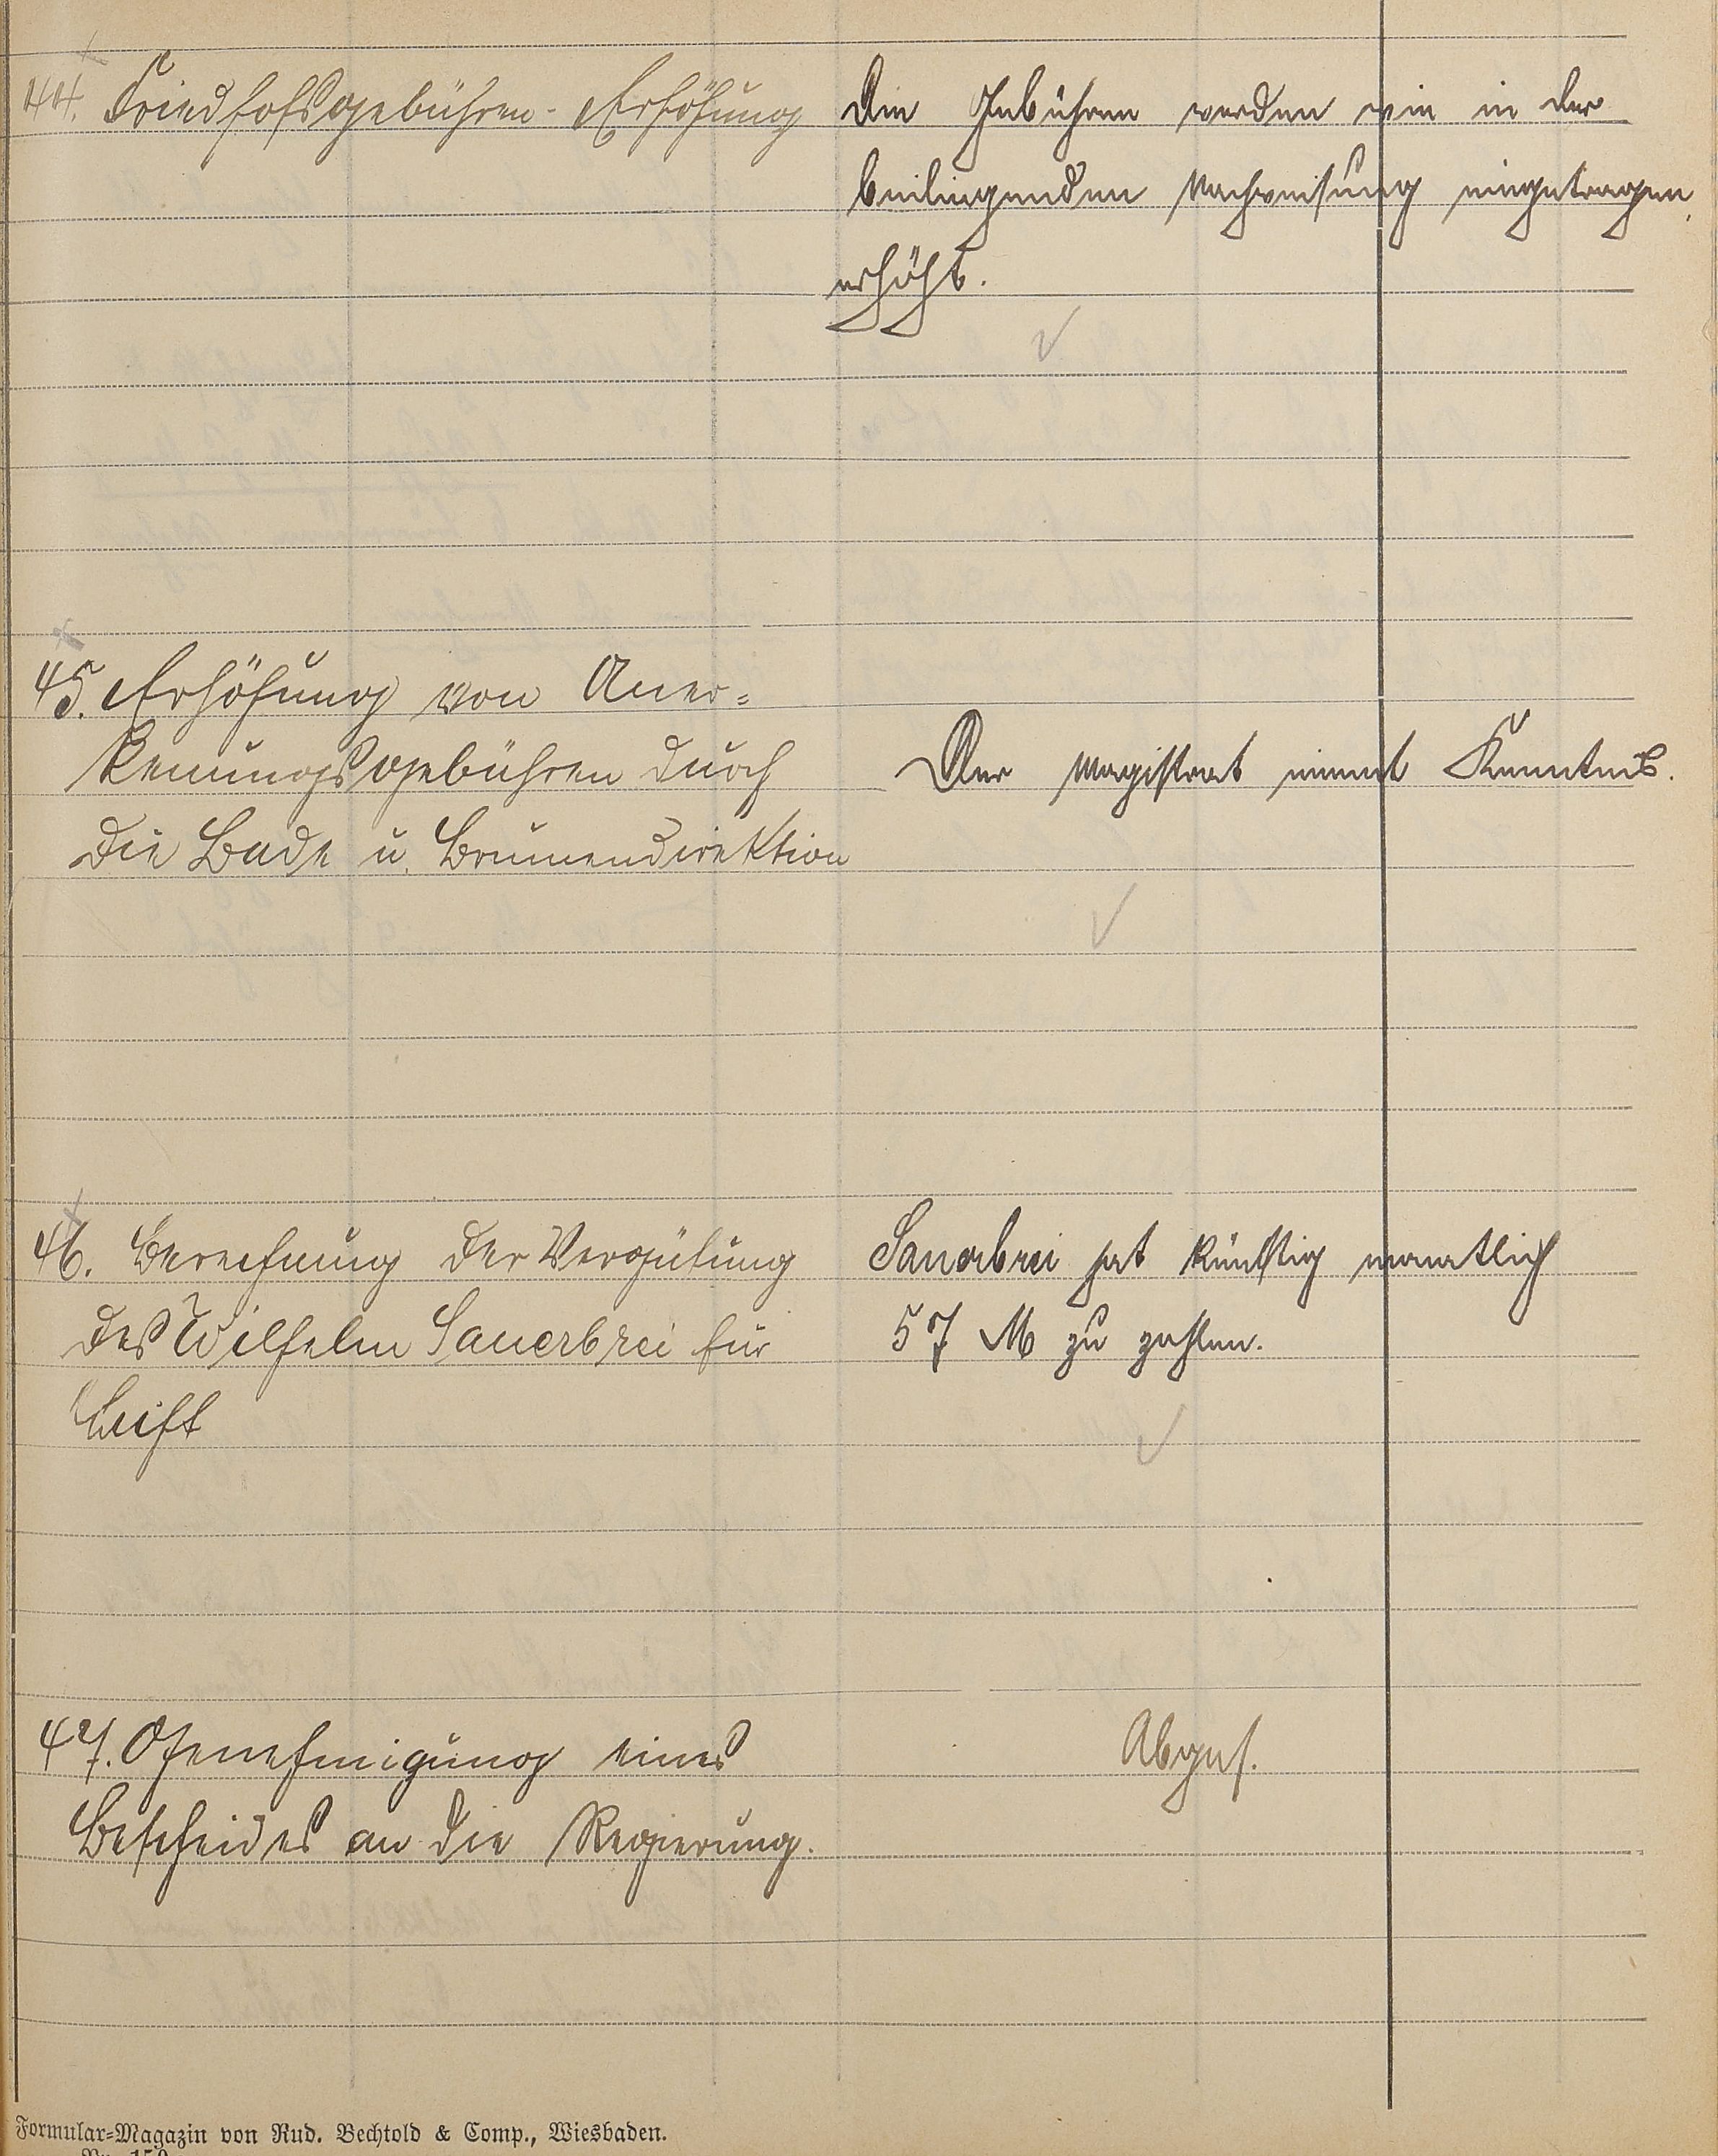 44. Friedhofsgebühren-Erhöhung
Die Gebühren werden wie in der
beiliegenden Nachweisung eingetragen
erhöht.
45. Erhöhung von Aner-
kennungsgebühren durch
die Bade u. Brunnendirektion
Der Magistrat nimmt Kenntnis.
46. Berechnung der Vergütung
des Wilhelm Sauerbrei für
Sauerbrei hat künftig monatlich
57 M zu zahlen.
47. Genehmigung eines
Bescheides an die Regierung.
Abges.
Formular-Magazin von Rud. Bechtold & Comp., Wiesbaden.